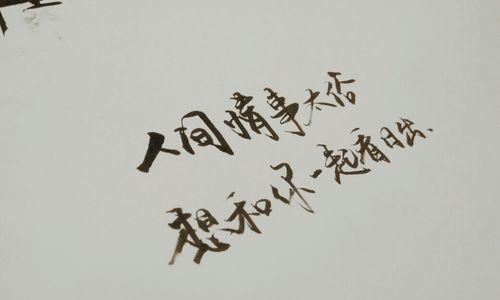 人间情事太吝
想和你一起看日出、